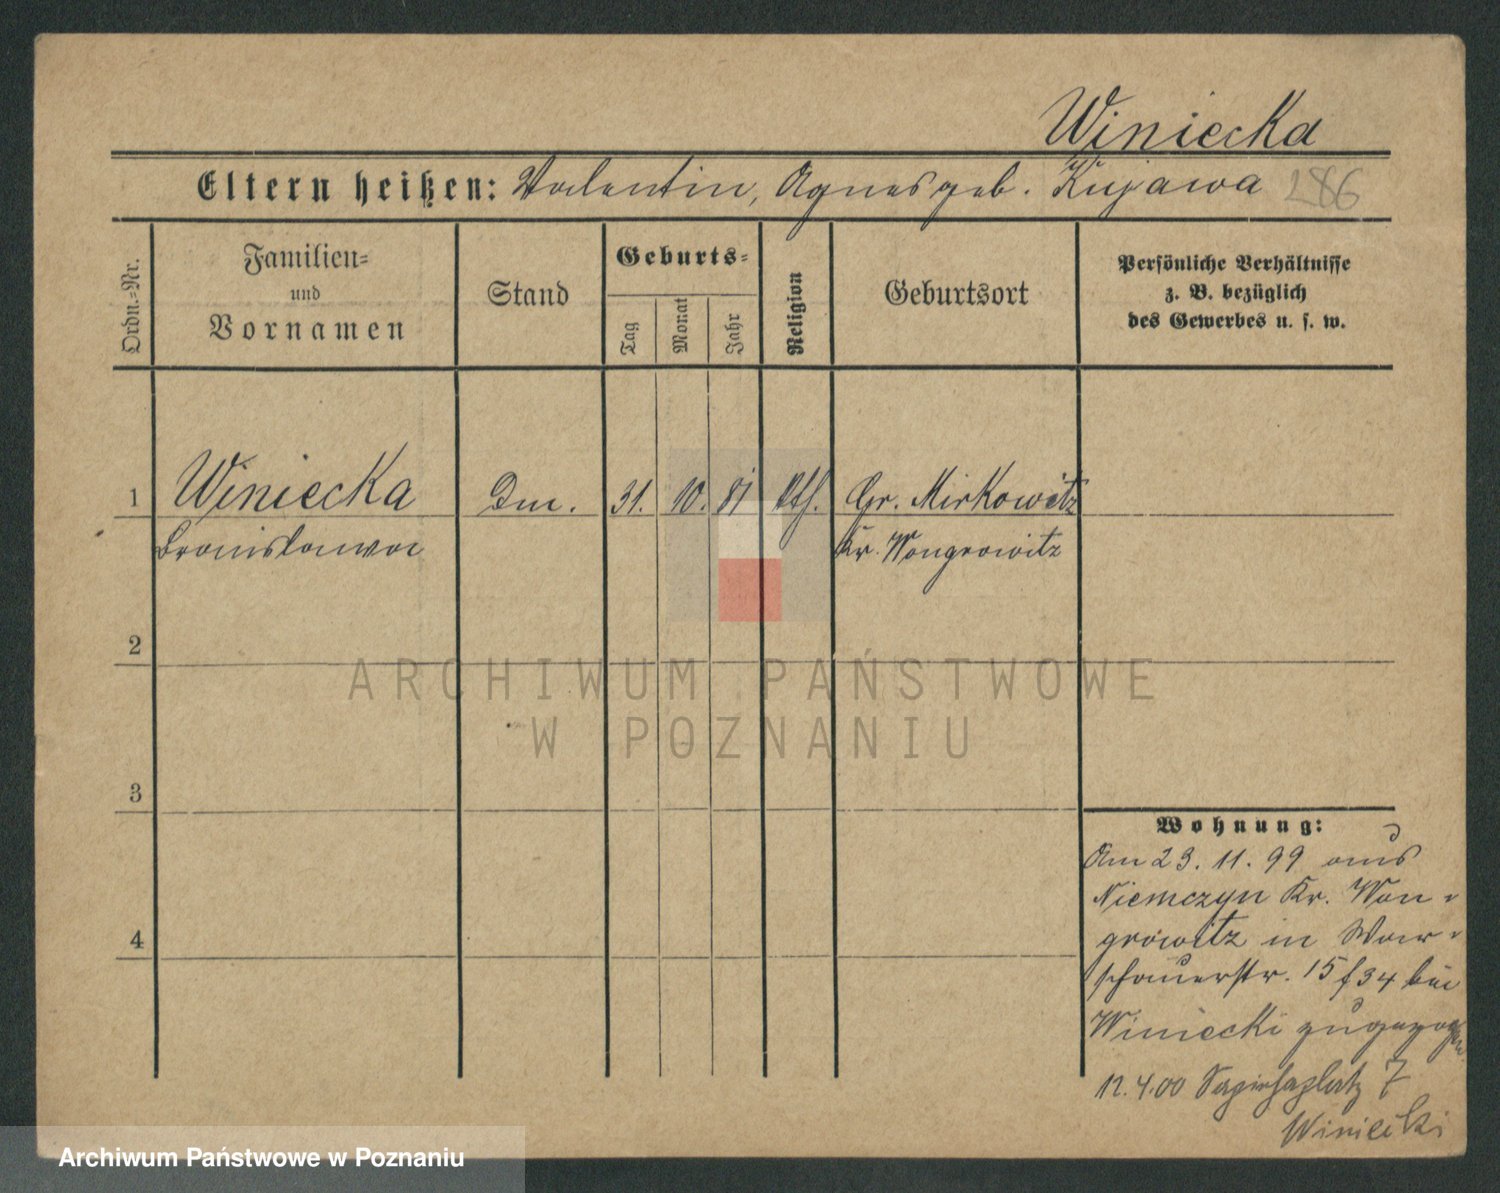 Winiecka
Eltern heißen: Valentin, Agnes geb. Kujawa 286
Ordn.=Nr.
Familien=
und
Vornamen
Stand
Geburts=
Tag
Monat
Jahr
Religion
Geburtsort
Persönliche Verhältnisse
z. B. bezüglich
des Gewerbes u. s. w.
1 Winiecka Dm. 31. 10. 81 kth. Gr. Mirkowitz
Bronislawa Kr. Wongrowitz
2
3
4
Wohnung:
Am 23. 11. 99 aus
Niemczyn Kr. Won-
growitz in War-
schauerstr. 15 f 34 bei
Winiecki zugezogen
12.4.00 Sapiehaplatz 7
Winiecki
ARCHIWUM PAŃSTWOWE
W POZNANIU
Archiwum Państwowe w Poznaniu